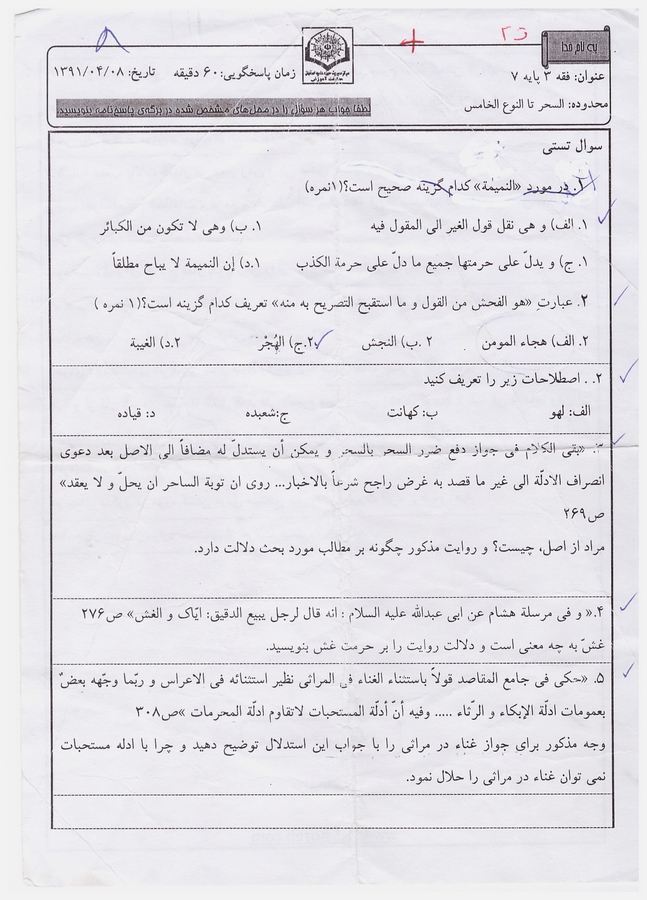 بنام خدا
عنوان: فقه ۳ پایه ۷
زمان پاسخگویی: ۶۰ دقیقه
تاریخ: ۱۳۹۱/۰۴/۰۸
محدوده: السحر تا النوع الخامس
لطفا جواب هر سؤال را در محل‌های مشخص شده در برگه‌ی پاسخ‌نامه بنویسید
سوال تستی
۱. در مورد «النمیمة» کدام گزینه صحیح است؟(۱نمره)
۱. الف) و هی نقل قول الغیر الی المقول فیه ۱. ب) وهی لا تکون من الکبائر
۱. ج) و یدلّ علی حرمتها جمیع ما دلّ علی حرمة الکذب ۱.د) إن النمیمة لا یباح مطلقاً
۲. عبارتِ «هو الفحش من القول و ما استقبح التصریح به منه» تعریف کدام گزینه است؟(۱ نمره )
۲. الف) هجاء المومن ۲ .ب) النجش ۲.ج) الهُجْر ۲.د) الغیبة
۲. . اصطلاحات زیر را تعریف کنید
الف: لهو ب: کهانت ج:شعبده د: قیاده
۳. «بقی الکلام فی جواز دفع ضرر السحر بالسحر و یمکن أن یستدلّ له مضافاً الی الاصل بعد دعوی
انصراف الادلّة الی غیر ما قصد به غرض راجح شرعاً بالاخبار... روی ان توبة الساحر ان یحلّ و لا یعقد»
ص۲۶۹
مراد از اصل، چیست؟ و روایت مذکور چگونه بر مطالب مورد بحث دلالت دارد.
۴.« و فی مرسلة هشام عن ابی عبدالله علیه السلام : انه قال لرجل یبیع الدقیق: ایّاک و الغش» ص۲۷۶
غشّ به چه معنی است و دلالت روایت را بر حرمت غش بنویسید.
۵. «حکی فی جامع المقاصد قولاً باستثناء الغناء فی المراثی نظیر استثنائه فی الاعراس و ربّما وجّهه بعضٌ
بعمومات ادلّة الإبکاء و الرّثاء ..... وفیه أنّ أدلّة المستحبات لاتقاوم ادلّة المحرمات »ص۳۰۸
وجه مذکور برای جواز غناء در مراثی را با جواب این استدلال توضیح دهید و چرا با ادله مستحبات
نمی توان غناء در مراثی را حلال نمود.